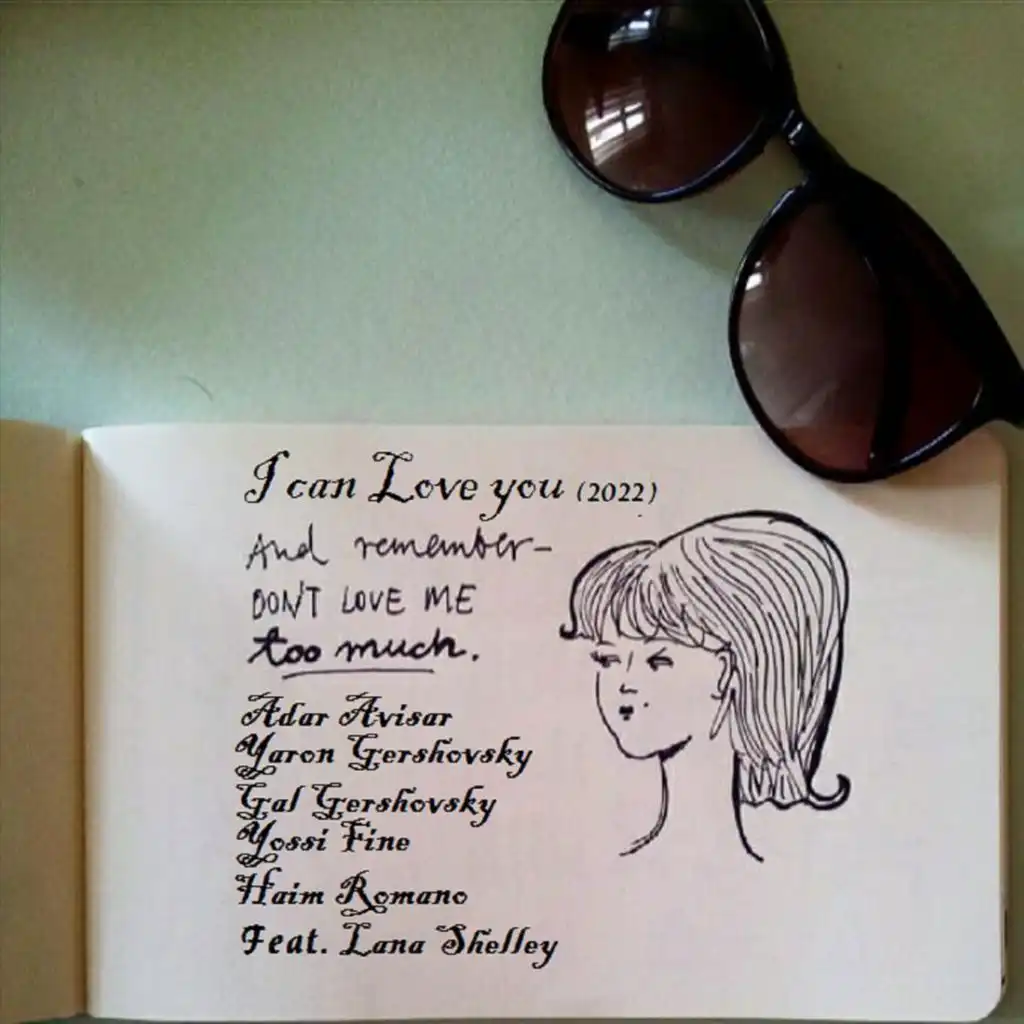 I can Love you (2022)
And remember-
DON'T LOVE ME
too much.
Adar Avisar
Yaron Gershovsky
Gal Gershovsky
Yossi Fine
Haim Romano
Feat. Lana Shelley